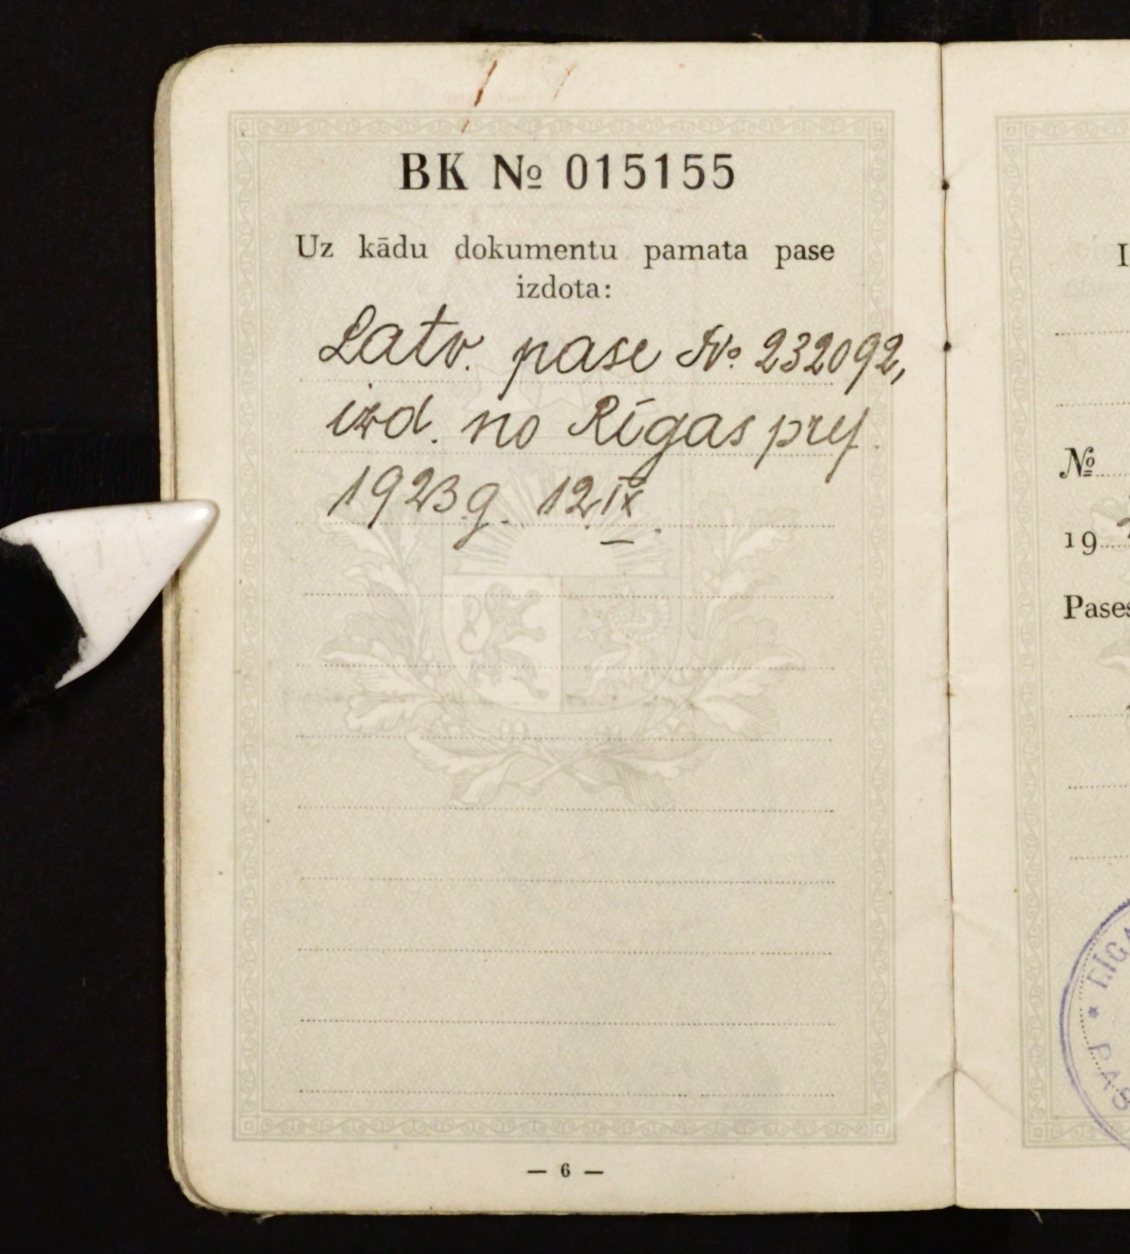 BK № 015155
Uz kādu dokumentu pamata pase
izdota:
Latv. pase № 232092,
izd. no Rīgas pref.
1923.g. 12.IX.
— 6 —
№
19
Pases
* RĪGA
PAS